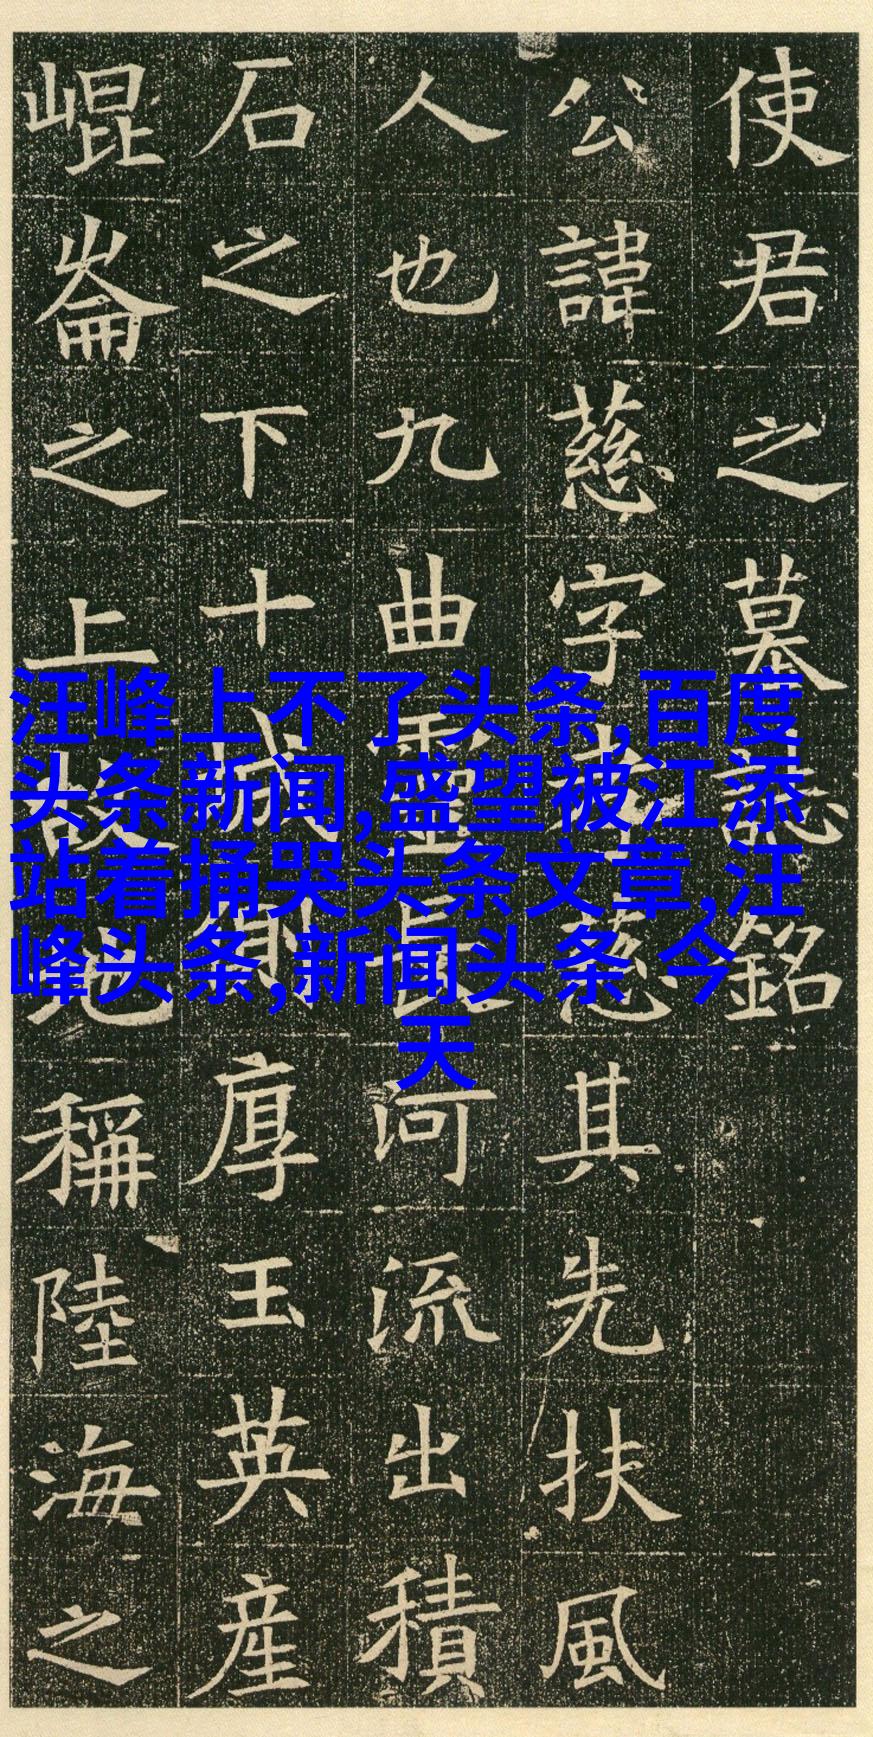 使君之墓誌銘
公諱慈字孝慈其先扶風
人也九曲靈長河流出積
石之下十城側厚玉英産
崐崙之上故地稱陸海之
汪峰上不了头条,百度
头条新闻,盛望被江添
站着捅哭头条文章,汪
峰头条,新闻头条 今
天